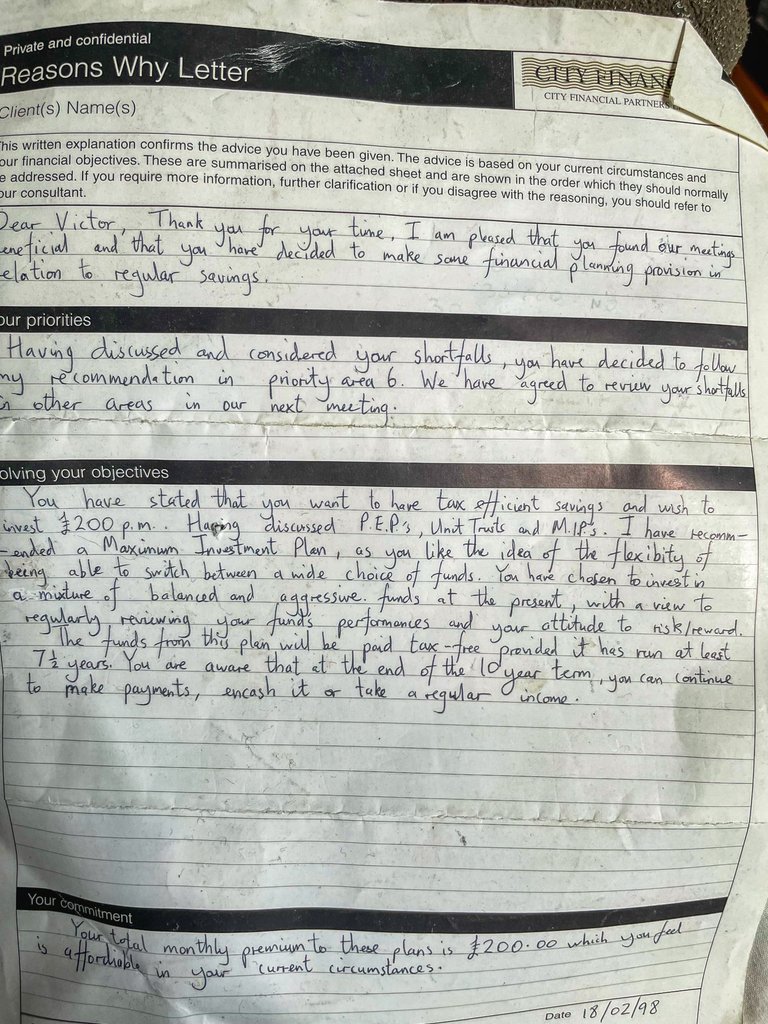 Private and confidential
Reasons Why Letter
CITY FINAN
CITY FINANCIAL PARTNERS
Client(s) Name(s)
This written explanation confirms the advice you have been given. The advice is based on your current circumstances and
our financial objectives. These are summarised on the attached sheet and are shown in the order which they should normally
e addressed. If you require more information, further clarification or if you disagree with the reasoning, you should refer to
our consultant.
Dear Victor, Thank you for your time, I am pleased that you found our meetings
eneficial and that you have decided to make some financial planning provision in
elation to regular savings.
our priorities
Having discussed and considered your shortfalls, you have decided to follow
my recommendation in priority area 6. We have agreed to review your shortfalls
in other areas in our next meeting.
olving your objectives
You have stated that you want to have tax efficient savings and wish to
invest £200 p.m.. Having discussed P.E.P's, Unit Trusts and M.I.P's. I have recomm-
-ended a Maximum Investment Plan, as you like the idea of the flexibity of
being able to switch between a wide choice of funds. You have chosen to invest in
a mixture of balanced and aggressive funds at the present, with a view to
regularly reviewing your funds performances and your attitude to risk/reward.
The funds from this plan will be paid tax-free provided it has run at least
7½ years. You are aware that at the end of the 10 year term, you can continue
to make payments, encash it or take a regular income.
Your commitment
Your total monthly premium to these plans is £200.00 which you feel
is affordable in your current circumstances.
Date 18/02/98